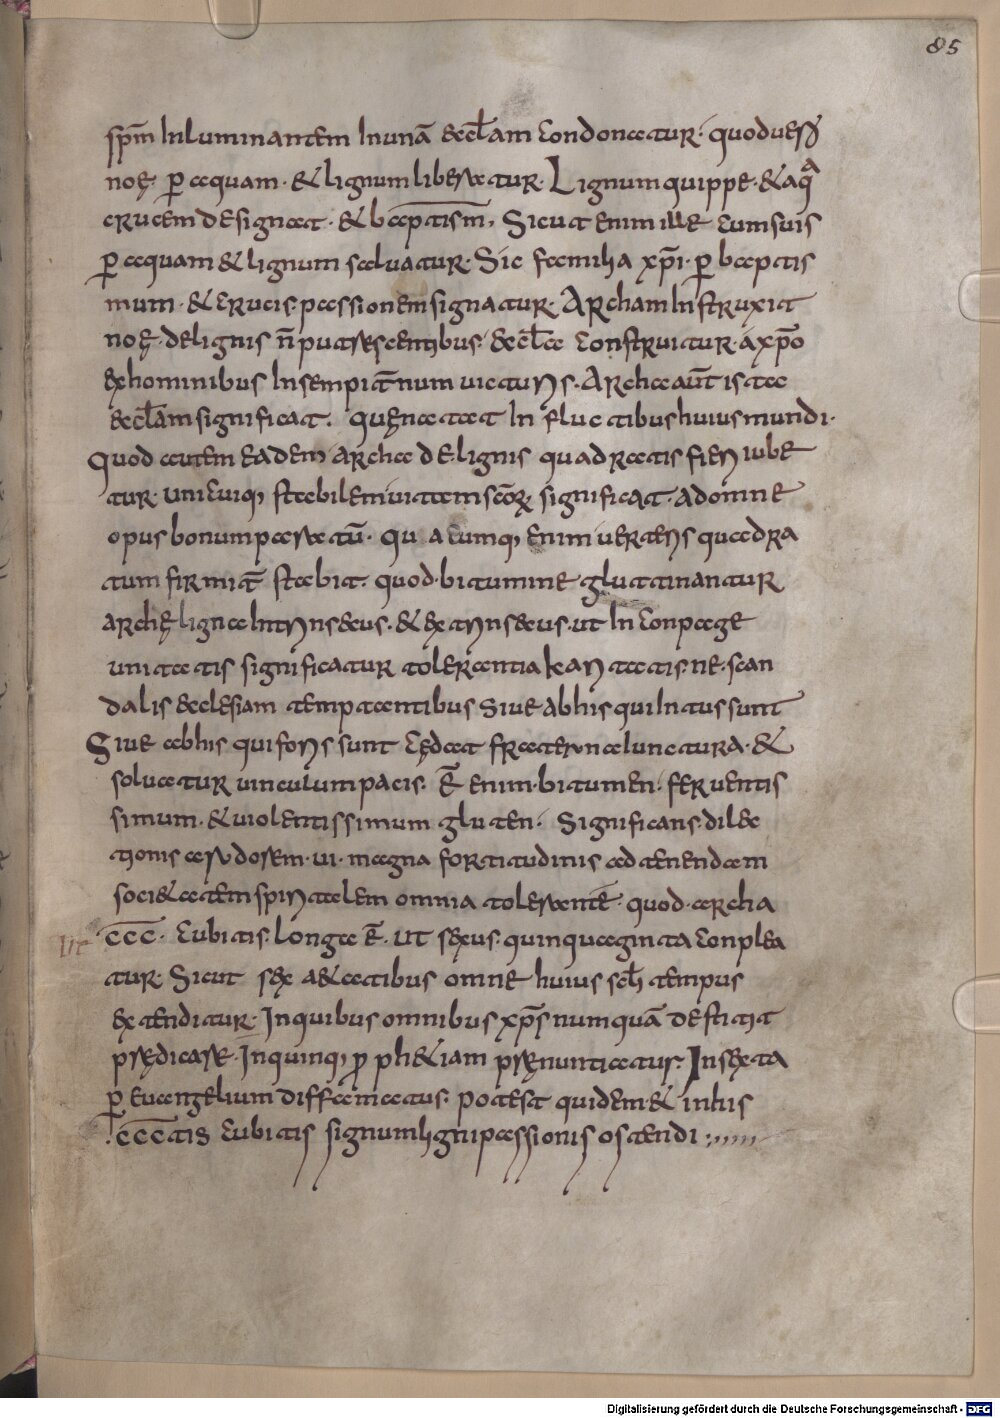 85
sp̄m Inluminantem In unā aeclam condonatur· quod vero
noę· p̄ aquam· & lignum liberatur· Lignum quippe· & aqa
crucem designat· & baptism̄, Sicut enim ille cum suis
p̄ aquam & lignum saluatur· Sic familia xp̄i· p̄ baptis
mum· & crucis· passionem signatur· Archam Instruxit
noę· de lignis n̄ putrescentibus· aecl̄a construitur· a xp̄o
ex hominibus In sempit̄num uicturis· Archa aut̄ ista
aecl̄am significat· quę natat In fluctibus huius mundi·
Quod autem eadem archa de lignis quadratis fieri iube
tur· unicuiq, stabilem uitam scōrꝝ significat· ad omne
opus bonum paratū· qu acumq, enim uerteris quadra
tum firmit̄ stabit· quod· bitumine gluttinantur
archę ligna Intrinsecus· & extrinsecus· ut In conpage
unitatis significatur tolerantia karitatis· ne· scan
dalis aeclesiam temptantibus Siue ab his qui Intus sunt
Siue ab his qui foris sunt cędat fraterna iunctura· &
soluatur uinculum pacis· ē enim· bitumen· feruentis
simum· & uiolentissimum gluten· Significans· dilec
tionis ardorem· ui· magna fortitudinis ad tenendam
soci&atem spiritalem omnia tolerantē quod· archa
c̄c̄c̄· cubitis· longa ē· ut sexies· quinquaginta conplea
tur· Sicut sex a&atibus omne huius scl̄i tempus
extenditur· In quibus omnibus xp̄s numquā destitit
prędicare· In quinq, p ph&iam prenuntiatus· In sexta
p̄ euangelium diffamatus· potest quidem· & in his
·c̄c̄c̄tis cubitis signum ligni passionis ostendi